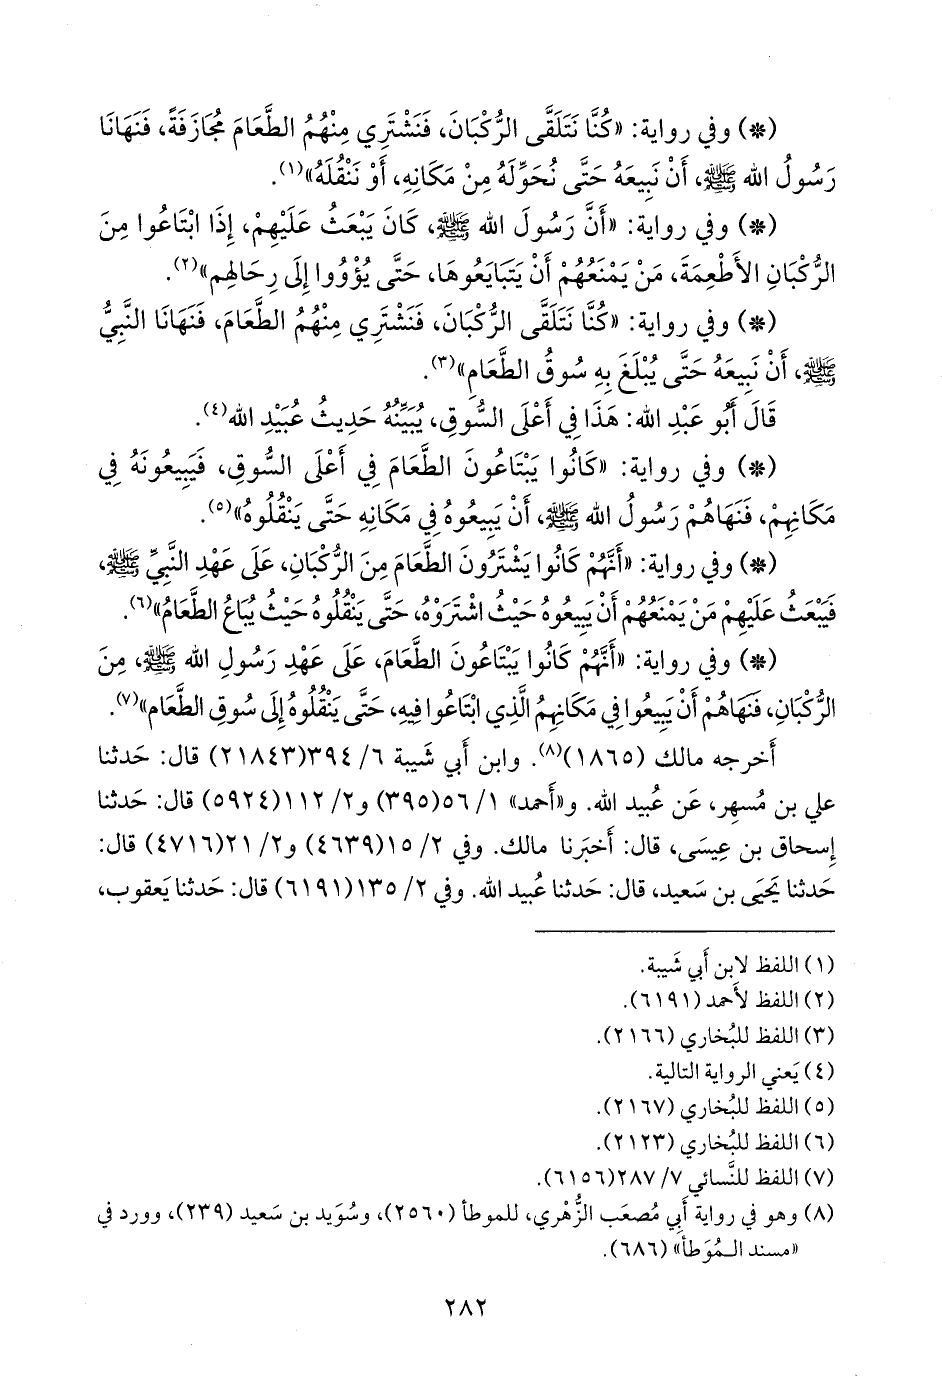 (*) وفي رواية: «كُنَّا نَتَلَقَّى الرُّكْبَانَ، فَنَشْتَرِي مِنْهُمُ الطَّعَامَ مُجَازَفَةً، فَنَهَانَا
رَسُولُ الله ﷺ، أَنْ نَبِيعَهُ حَتَّى نُحَوِّلَهُ مِنْ مَكَانِهِ، أَوْ نَنْقُلَهُ»(١).
(*) وفي رواية: «أَنَّ رَسُولَ الله ﷺ، كَانَ يَبْعَثُ عَلَيْهِمْ، إِذَا ابْتَاعُوا مِنَ
الرُّكْبَانِ الأَطْعِمَةَ، مَنْ يَمْنَعُهُمْ أَنْ يَتَبَايَعُوهَا، حَتَّى يُؤْوُوا إِلَى رِحَالِهِم»(٢).
(*) وفي رواية: «كُنَّا نَتَلَقَّى الرُّكْبَانَ، فَنَشْتَرِي مِنْهُمُ الطَّعَامَ، فَنَهَانَا النَّبِيُّ
ﷺ، أَنْ نَبِيعَهُ حَتَّى يُبْلَغَ بِهِ سُوقُ الطَّعَامِ»(٣).
قَالَ أَبُو عَبْدِ الله: هَذَا فِي أَعْلَى السُّوقِ، يُبَيِّنُهُ حَدِيثُ عُبَيْدِ الله(٤).
(*) وفي رواية: «كَانُوا يَبْتَاعُونَ الطَّعَامَ فِي أَعْلَى السُّوقِ، فَيَبِيعُونَهُ فِي
مَكَانِهِمْ، فَنَهَاهُمْ رَسُولُ الله ﷺ، أَنْ يَبِيعُوهُ فِي مَكَانِهِ حَتَّى يَنْقُلُوهُ»(٥).
(*) وفي رواية: «أَنَّهُمْ كَانُوا يَشْتَرُونَ الطَّعَامَ مِنَ الرُّكْبَانِ، عَلَى عَهْدِ النَّبِيِّ ﷺ،
فَيَبْعَثُ عَلَيْهِمْ مَنْ يَمْنَعُهُمْ أَنْ يَبِيعُوهُ حَيْثُ اشْتَرَوْهُ، حَتَّى يَنْقُلُوهُ حَيْثُ يُبَاعُ الطَّعَامُ»(٦).
(*) وفي رواية: «أَنَّهُمْ كَانُوا يَبْتَاعُونَ الطَّعَامَ، عَلَى عَهْدِ رَسُولِ الله ﷺ، مِنَ
الرُّكْبَانِ، فَنَهَاهُمْ أَنْ يَبِيعُوا فِي مَكَانِهِمُ الَّذِي ابْتَاعُوا فِيهِ، حَتَّى يَنْقُلُوهُ إِلَى سُوقِ الطَّعَام»(٧).
أَخرجه مالك (١٨٦٥)(٨). وابن أَبي شَيبة ٦/ ٣٩٤(٢١٨٤٣) قال: حَدثنا
علي بن مُسهِر، عَن عُبيد الله. و«أَحمد» ١/ ٥٦(٣٩٥) و٢/ ١١٢(٥٩٢٤) قال: حَدثنا
إِسحاق بن عِيسَى، قال: أَخبَرنا مالك. وفي ٢/ ١٥(٤٦٣٩) و٢/ ٢١(٤٧١٦) قال:
حَدثنا يَحيَى بن سَعيد، قال: حَدثنا عُبيد الله. وفي ٢/ ١٣٥(٦١٩١) قال: حَدثنا يَعقوب،
(١) اللفظ لابن أَبي شَيبة.
(٢) اللفظ لأَحمد (٦١٩١).
(٣) اللفظ للبُخاري (٢١٦٦).
(٤) يَعني الرواية التالية.
(٥) اللفظ للبُخاري (٢١٦٧).
(٦) اللفظ للبُخاري (٢١٢٣).
(٧) اللفظ للنَّسائي ٧/ ٢٨٧(٦١٥٦).
(٨) وهو في رواية أَبي مُصعَب الزُّهْري، للموطأ (٢٥٦٠)، وسُوَيد بن سَعيد (٢٣٩)، وورد في
«مسند المُوَطأ» (٦٨٦).
٢٨٢